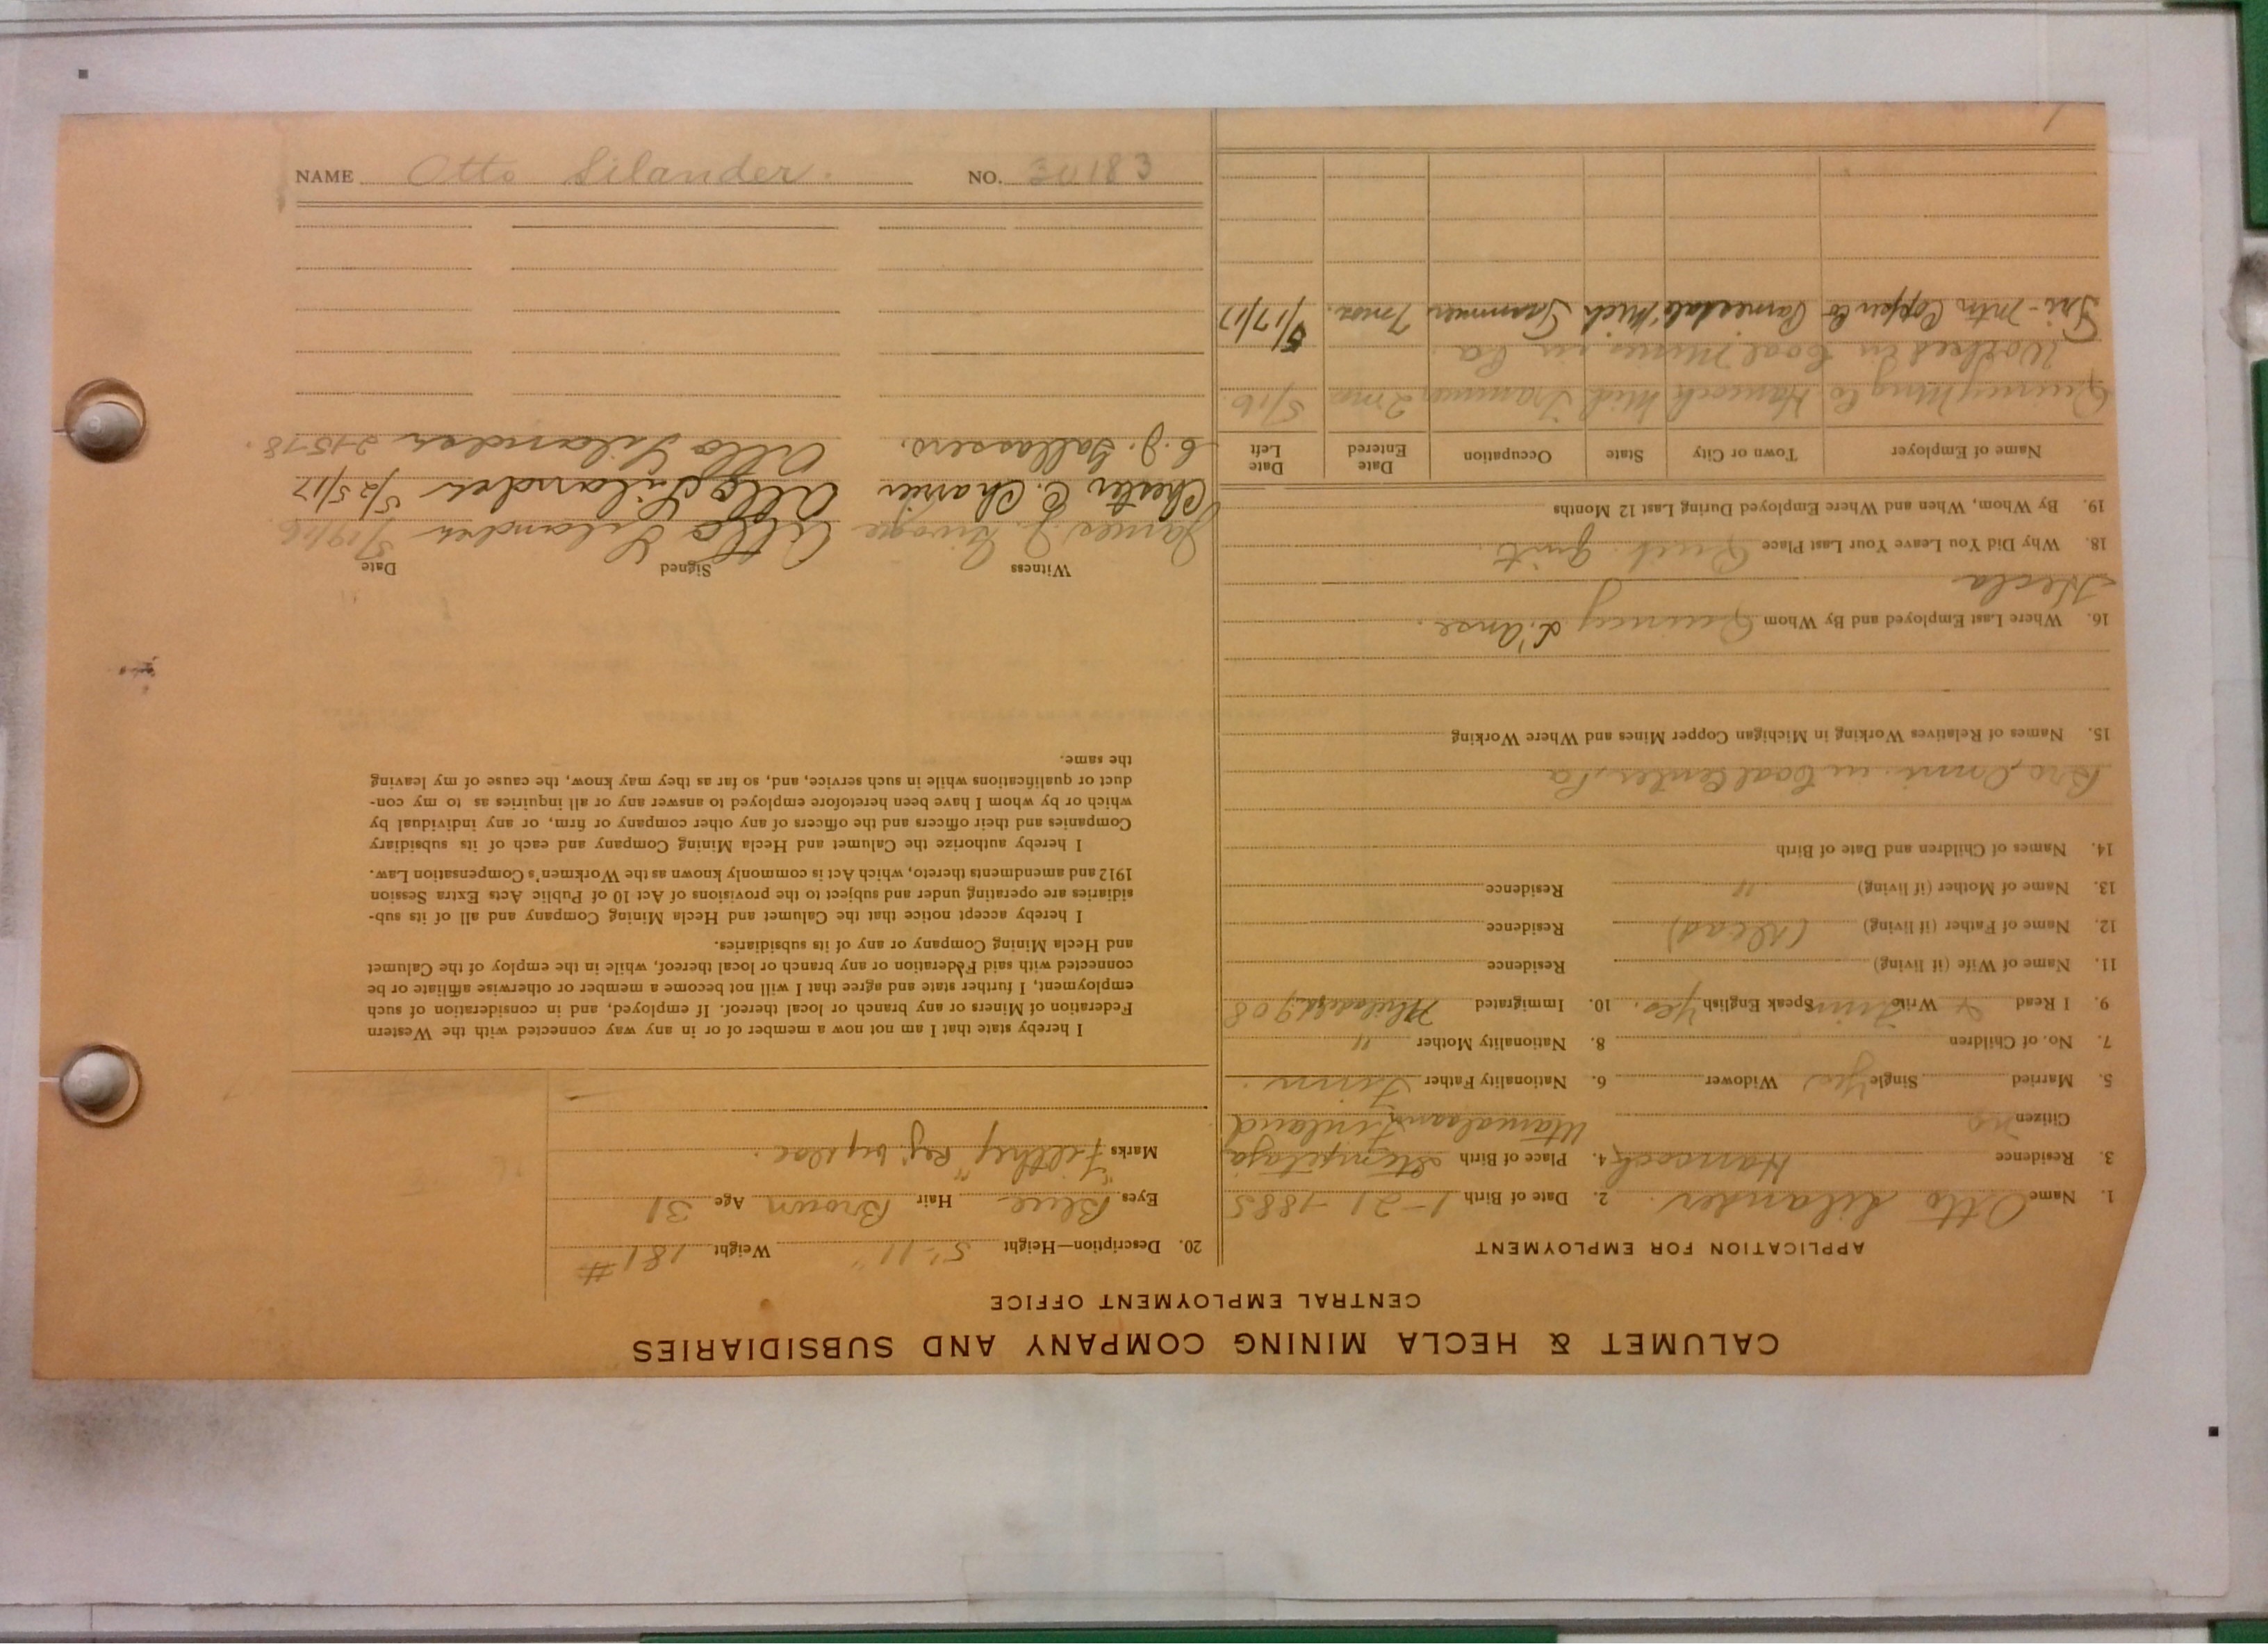 CALUMET & HECLA MINING COMPANY AND SUBSIDIARIES
CENTRAL EMPLOYMENT OFFICE
APPLICATION FOR EMPLOYMENT
1. Name Otto Silander. 2. Date of Birth 1-21-1885
3. Residence Hancock 4. Place of Birth
Citizen no Finland
5. Married Single Yes Widower 6. Nationality Father Finn.
7. No. of Children 8. Nationality Mother "
9. I Read & Write Finn Speak English Yes. 10. Immigrated 1908
11. Name of Wife (if living) Residence
12. Name of Father (if living) (Dead) Residence
13. Name of Mother (if living) " Residence
14. Names of Children and Date of Birth
Bro, in Coal Center, Pa
15. Names of Relatives Working in Michigan Copper Mines and Where Working
16. Where Last Employed and By Whom Quincy L'Anse.
Hecla
18. Why Did You Leave Your Last Place Quit. quit.
19. By Whom, When and Where Employed During Last 12 Months
Name of Employer Town or City State Occupation Date Entered Date Left
Quincy Mng Co Hancock Mich Trammer 2 mos 5/16.
Worked in Coal Mines in Pa.
Tri-Mtn Copper Co Painesdale Mich Trammer 7 mos. 5/17/17
20. Description—Height 5'-11" Weight 181 #
Eyes Blue Hair Brown Age 31
Marks
I hereby state that I am not now a member of or in any way connected with the Western
Federation of Miners or any branch or local thereof. If employed, and in consideration of such
employment, I further state and agree that I will not become a member or otherwise affiliate or be
connected with said Federation or any branch or local thereof, while in the employ of the Calumet
and Hecla Mining Company or any of its subsidiaries.
I hereby accept notice that the Calumet and Hecla Mining Company and all of its sub-
sidiaries are operating under and subject to the provisions of Act 10 of Public Acts Extra Session
1912 and amendments thereto, which Act is commonly known as the Workmen's Compensation Law.
I hereby authorize the Calumet and Hecla Mining Company and each of its subsidiary
Companies and their officers and the officers of any other company or firm, or any individual by
which or by whom I have been heretofore employed to answer any or all inquiries as to my con-
duct or qualifications while in such service, and, so far as they may know, the cause of my leaving
the same.
Witness Signed Date
James J. Otto Silander
Chester C. Otto Silander 5/25/17
C. J. Otto Silander 2-15-18.
NAME Otto Silander. NO. 30183